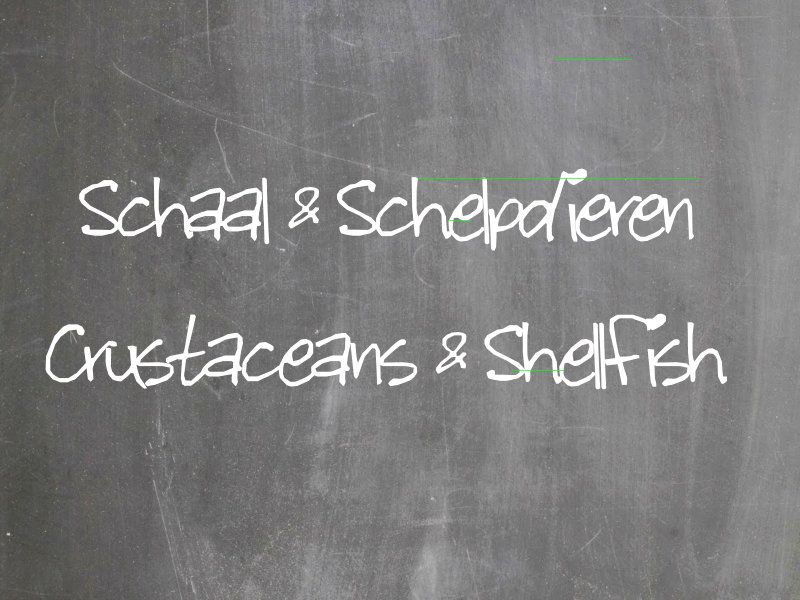 Schaal & Schelpdieren
Crustaceans & Shellfish